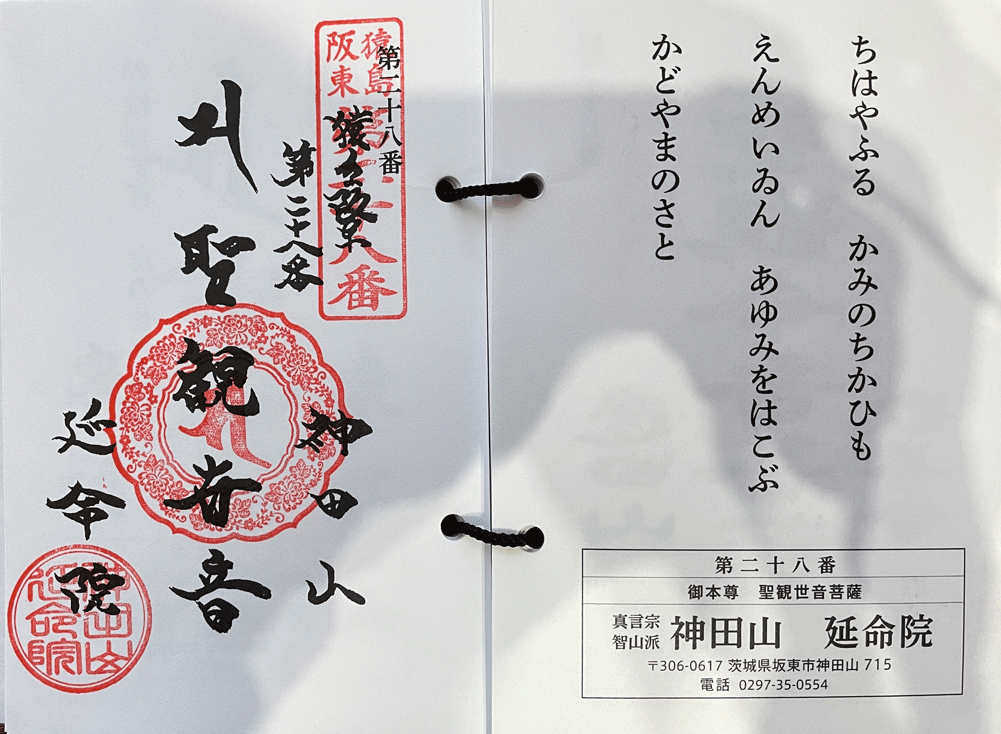 ちはやふる　かみのちかひも
えんめいゐん　あゆみをはこぶ
かどやまのさと
第二十八番
御本尊　聖観世音菩薩
真言宗
智山派
神田山　延命院
〒306-0617 茨城県坂東市神田山 715
電話 0297-35-0554
第二十八番
猿島
阪東
第二十八番
猿島阪東
第二十八番
神田山
聖観世音
延命院
神田山
延命院